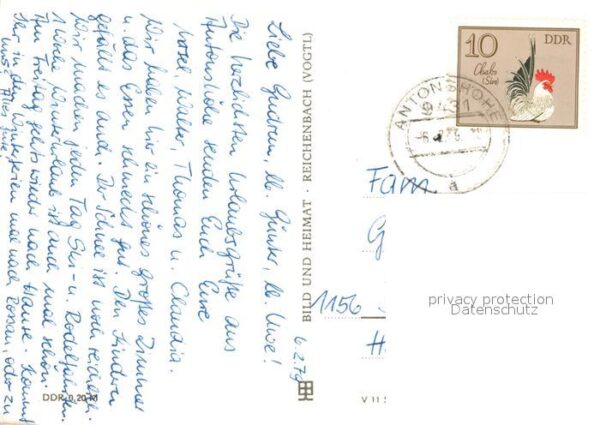 Liebe Gudrun, lb. Günter, lb. Uwe!
Die herzlichsten Urlaubsgrüße aus
Antonshöhe senden Euch Eure
Thomas u. Claudia.
Wir haben hier ein schönes großes Zimmer
u. das Essen schmeckt gut. Den Kindern
gefällt es auch. Der Schnee ist noch reichlich.
Wir machen jeden Tag Ski- u. Rodelfahrten.
1 Woche Winterurlaub ist auch mal schön.
Am Freitag gehts wieder nach Hause. Kommt
Ihr in den Winterferien mal nach Zossau, oder zu
uns? Alles Gute!
6.2.79
DDR 0,20 M
BILD UND HEIMAT · REICHENBACH (VOGTL)
10
DDR
Chabo
ANTONSHÖHE
9431
a
Fam.
G
1156
H
V 11
privacy protection
Datenschutz